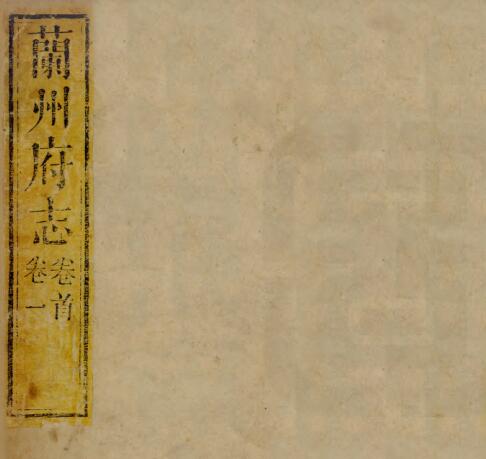 蘭州府志
卷首
卷一